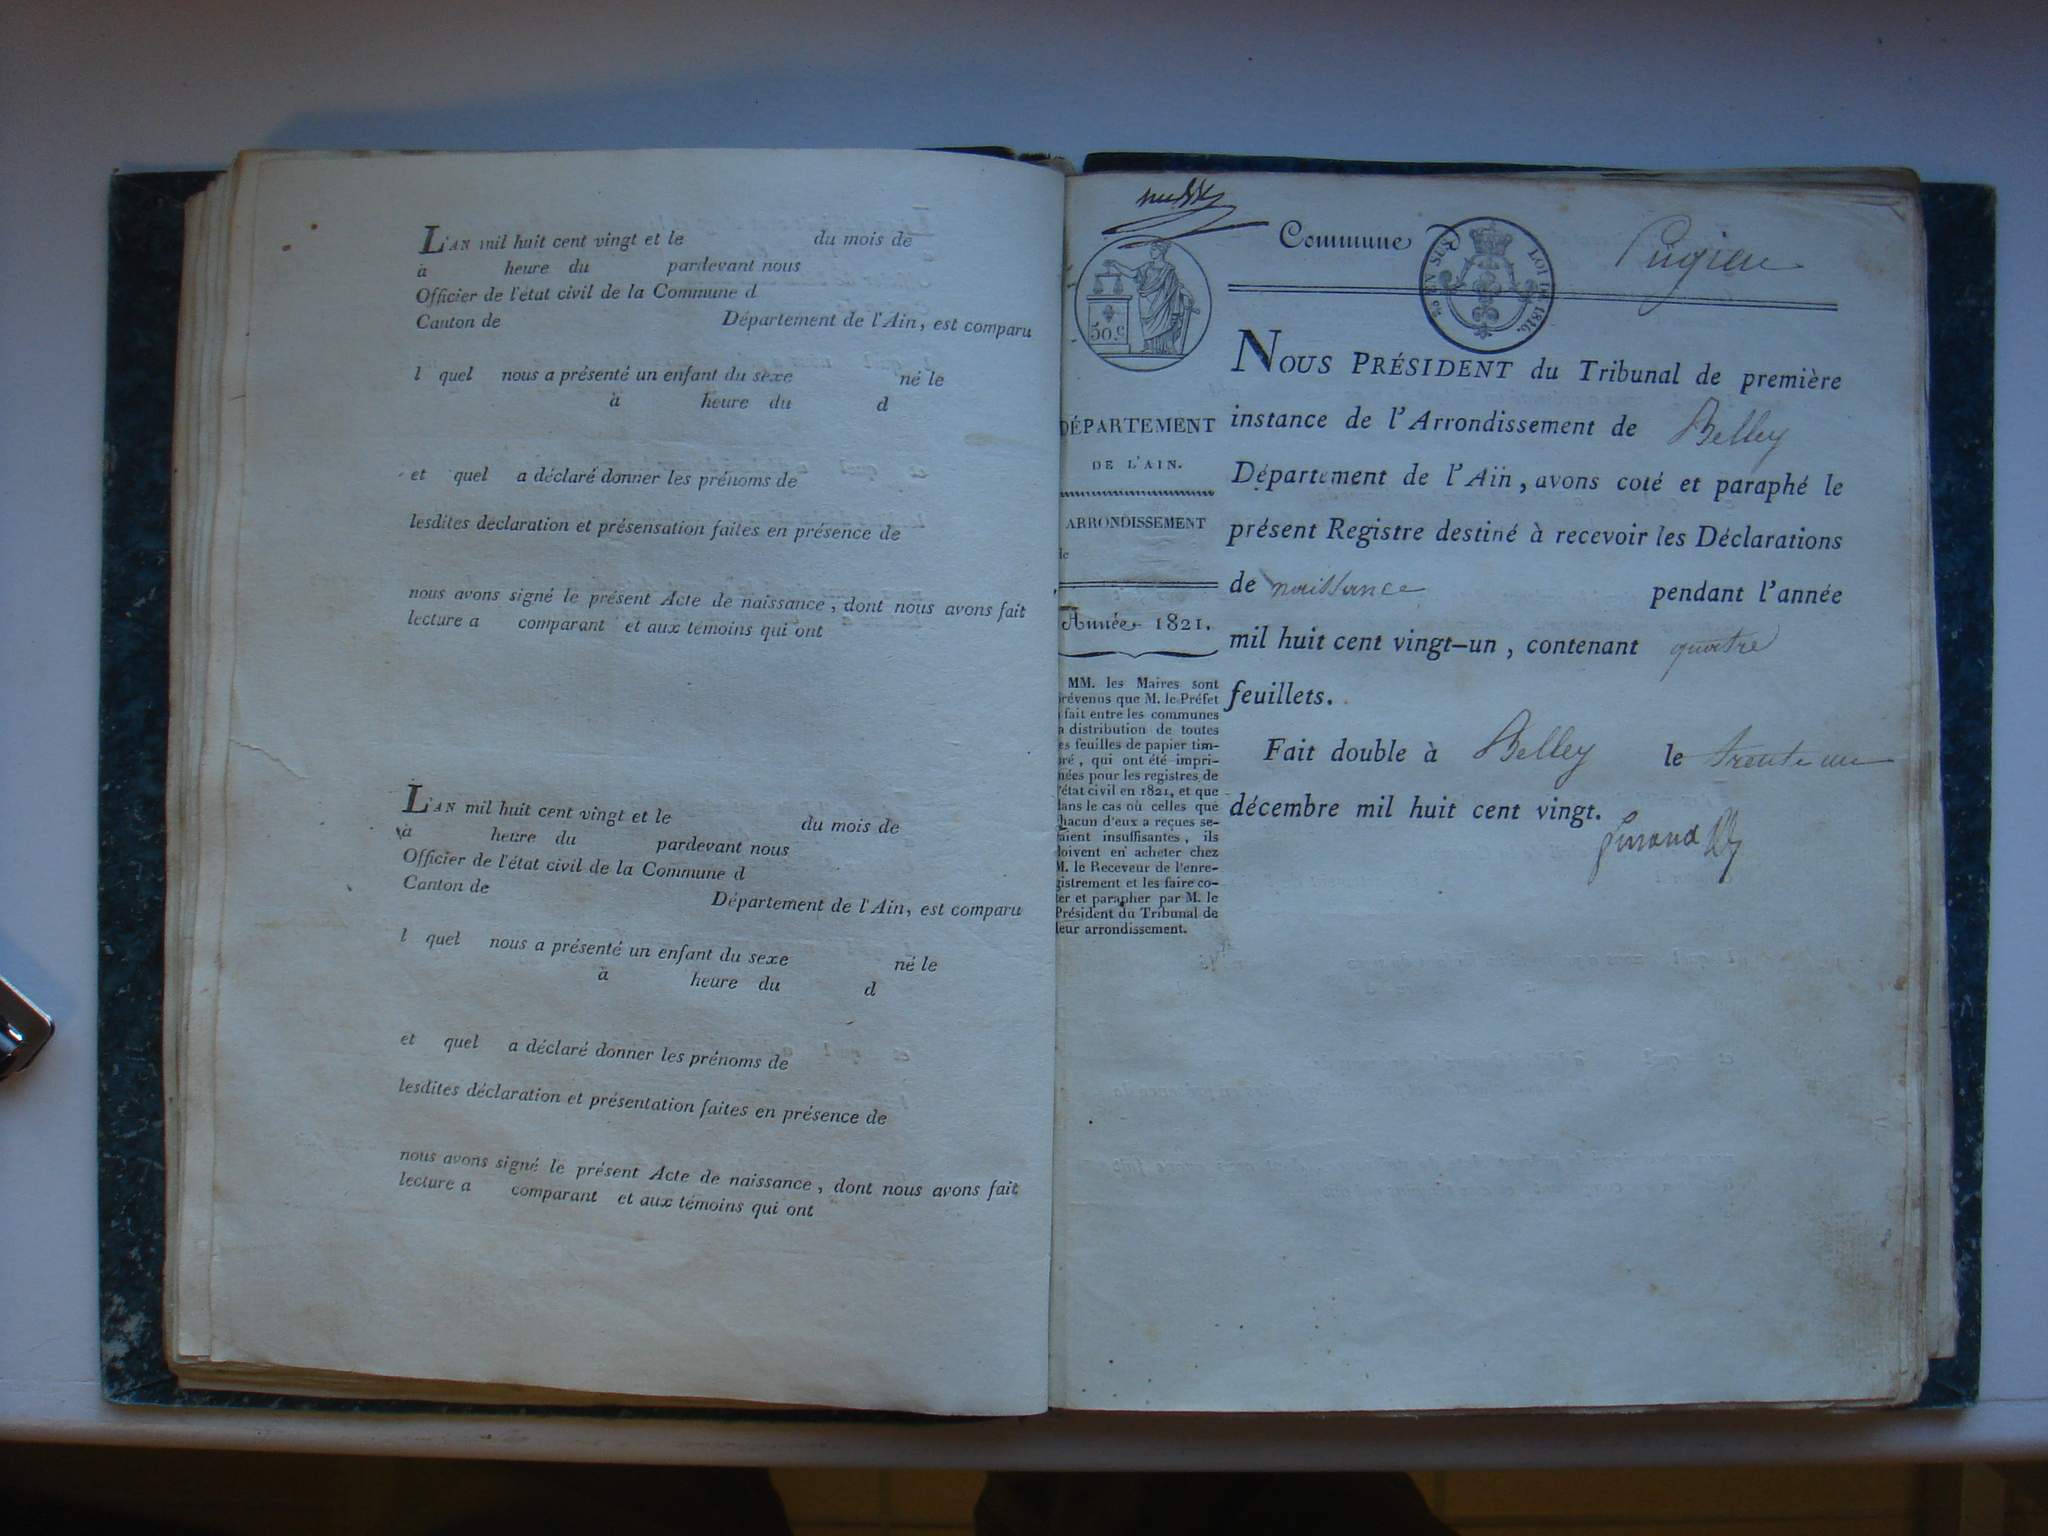 L'AN mil huit cent vingt et le du mois de
à heure du pardevant nous
Officier de l'état civil de la Commune d
Canton de Département de l'Ain, est comparu
l quel nous a présenté un enfant du sexe né le
à heure du d
et quel a déclaré donner les prénoms de
lesdites déclaration et présensation faites en présence de
nous avons signé le présent Acte de naissance, dont nous avons fait
lecture a comparant et aux témoins qui ont
L'AN mil huit cent vingt et le du mois de
à heure du pardevant nous
Officier de l'état civil de la Commune d
Canton de Département de l'Ain, est comparu
l quel nous a présenté un enfant du sexe né le
à heure du d
et quel a déclaré donner les prénoms de
lesdites déclaration et présentation faites en présence de
nous avons signé le présent Acte de naissance, dont nous avons fait
lecture a comparant et aux témoins qui ont
50.c
DÉPARTEMENT
DE L'AIN.
ARRONDISSEMENT
de
Année 1821.
MM. les Maires sont
prévenus que M. le Préfet
a fait entre les communes
la distribution de toutes
les feuilles de papier tim-
bré, qui ont été impri-
mées pour les registres de
l'état civil en 1821, et que
dans le cas où celles que
chacun d'eux a reçues se-
raient insuffisantes, ils
doivent en acheter chez
M. le Receveur de l'enre-
gistrement et les faire co-
ter et parapher par M. le
Président du Tribunal de
leur arrondissement.
Commune D Pugieu
LOI DE 1816.
NOUS PRÉSIDENT du Tribunal de première
instance de l'Arrondissement de Belley
Département de l'Aïn, avons coté et paraphé le
présent Registre destiné à recevoir les Déclarations
de naissance pendant l'année
mil huit cent vingt-un, contenant quatre
feuillets.
Fait double à Belley le trente un
décembre mil huit cent vingt.